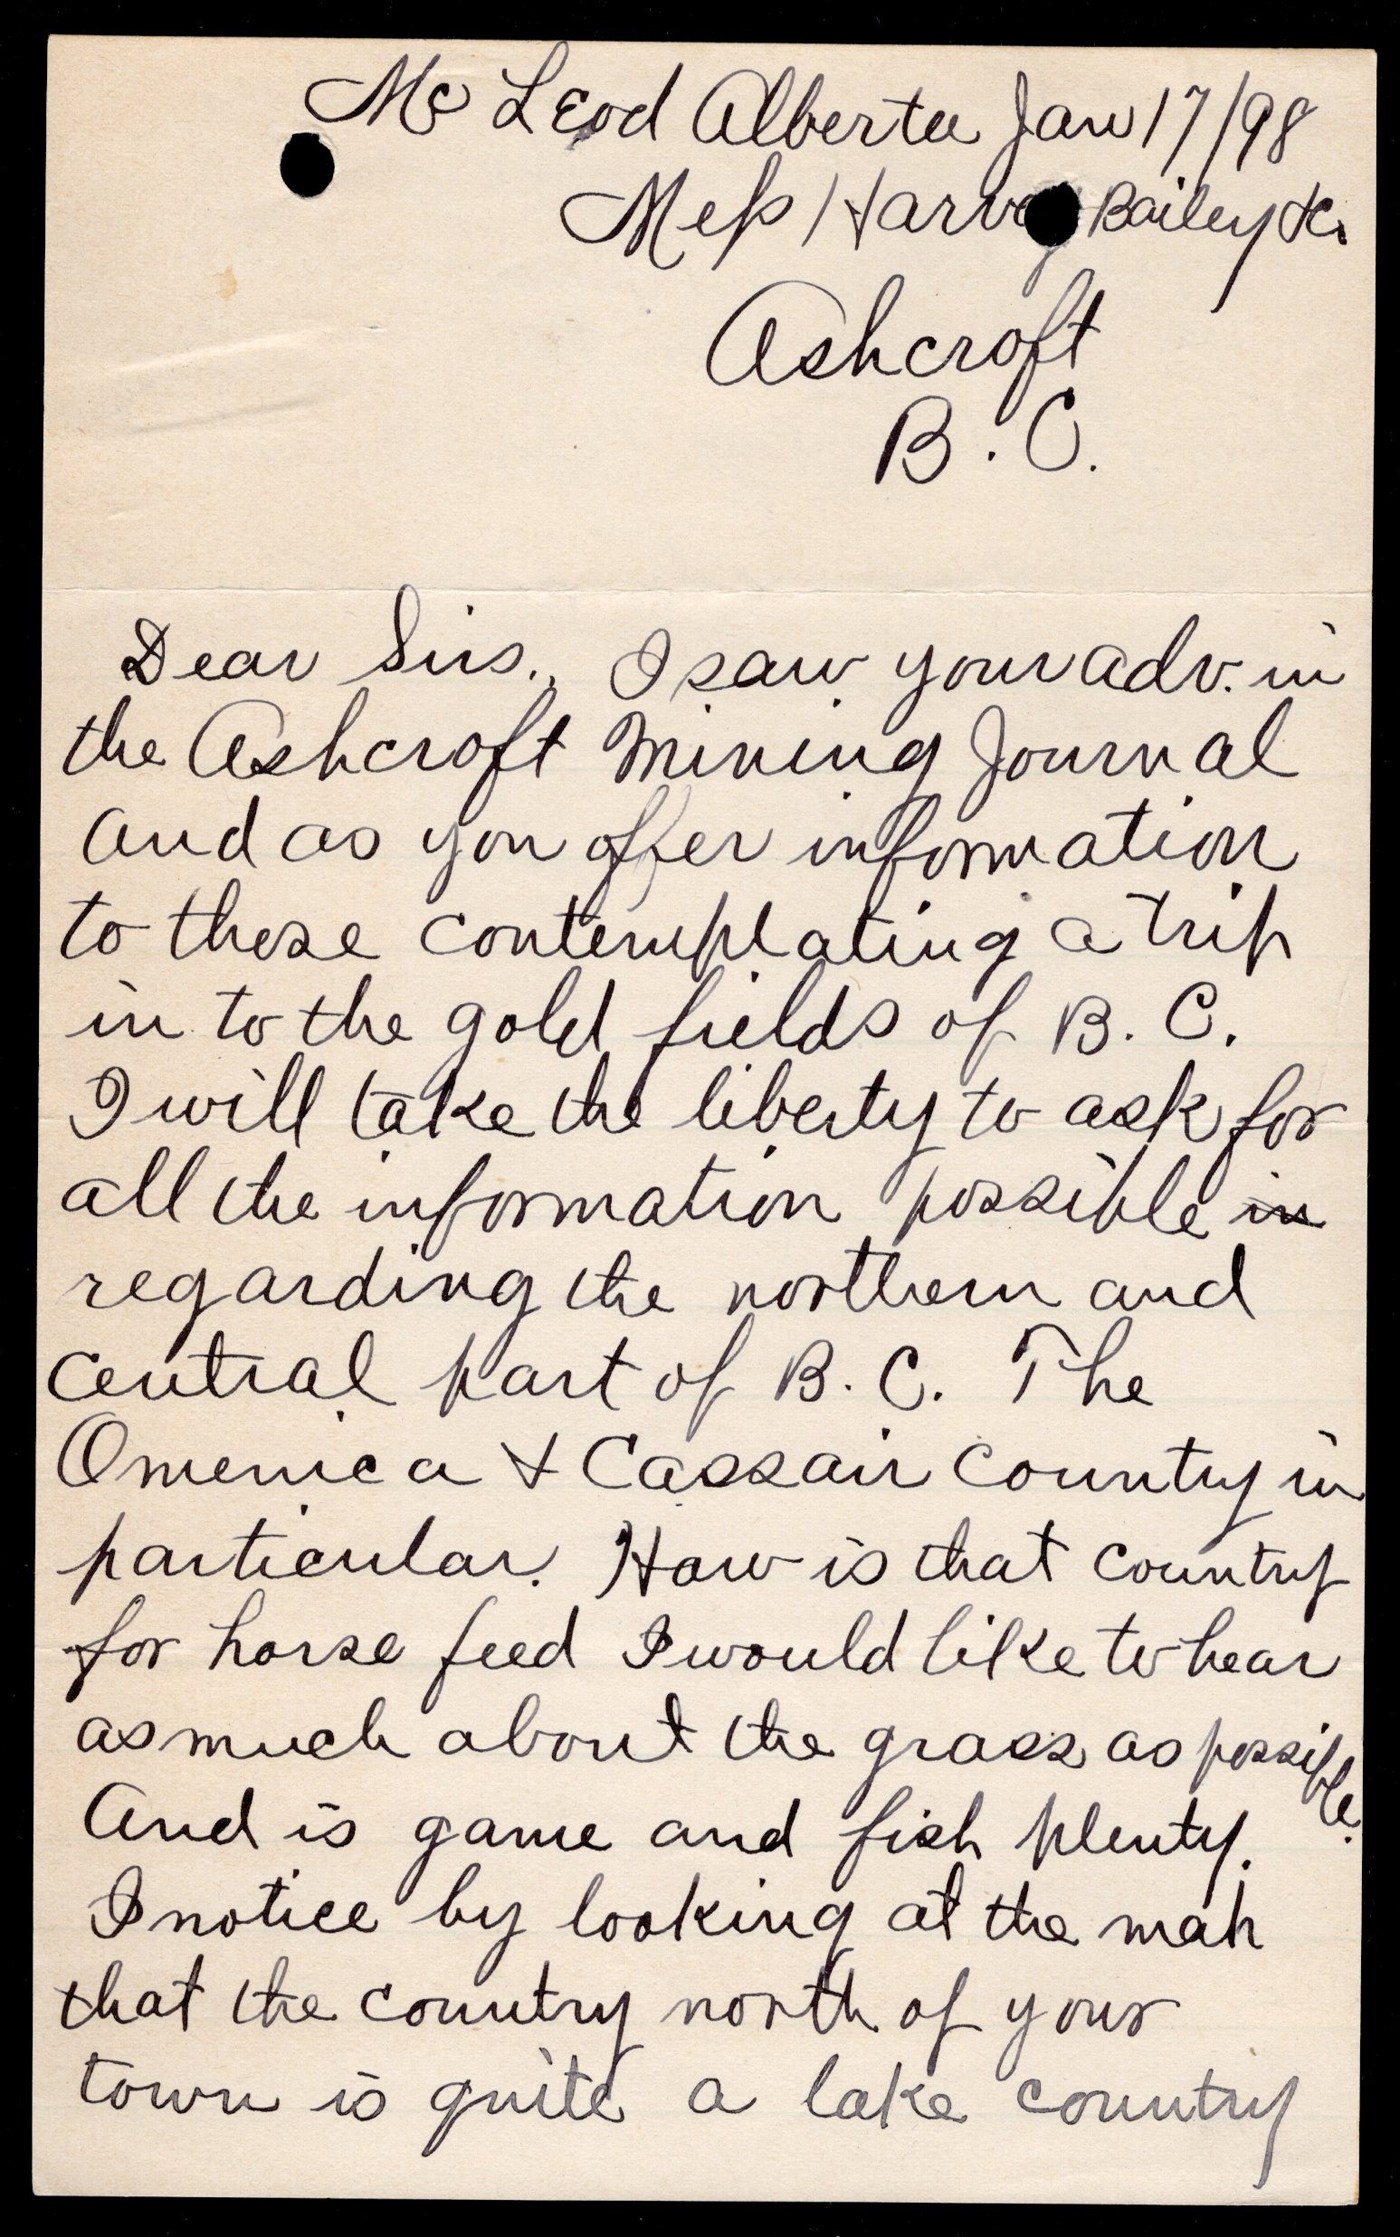 Mc Leod Alberta Jan 17/98
Mess Harvey Bailey & Co
Ashcroft
B. C.
Dear Sirs., I saw your adv. in
the Ashcroft Mining Journal
and as you offer information
to those contemplating a trip
in to the gold fields of B. C.
I will take the liberty to ask for
all the information possible in
regarding the northern and
central part of B. C. The
Omenica & Cassair country in
particular. How is that country
for horse feed I would like to hear
as much about the grass as possible.
And is game and fish plenty.
I notice by looking at the map
that the country north of your
town is quite a lake country